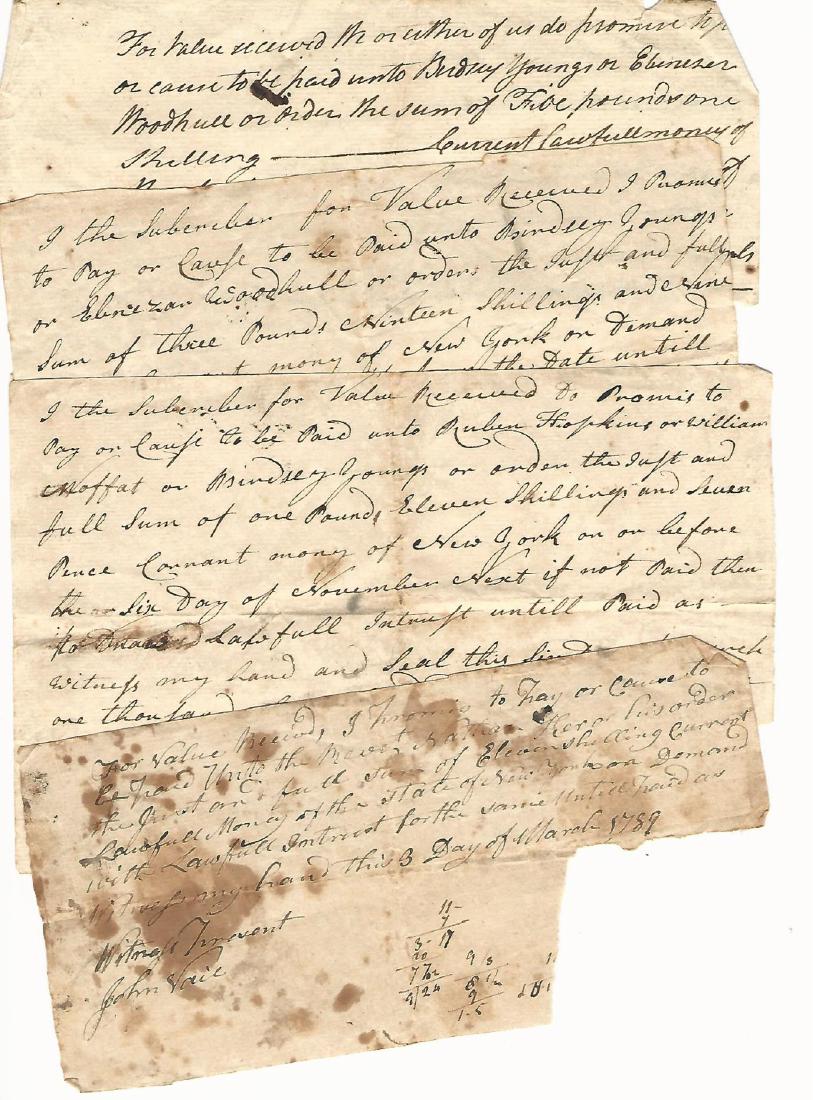 For Value received the or either of us do promise to p
or cause to be paid unto Birdsey Youngs or Ebenezer
Woodhull or order the sum of Five pounds one
Shilling Current Lawfull money of
I the Subcriber for Value Received I Promis
to Pay or Cause to be Paid unto Birdsey Youngs
or Ebenezar Woodhull or orders the Just and full
Sum of three Pounds Ninteen Shillings and Nine
mony of New York on Demand
the Date untill
I the Subcriber for Value Received Do Promis to
Pay or Cause to be Paid unto Ruben Hopkins or William
Moffat or Birdsey Youngs or order the Just and
full Sum of one Pound, Eleven Shillings and Seven
Pence Corrant mony of New York on or before
the Six Day of November Next if not Paid then
Lawfull Intrust untill Paid as
Witness my hand and Seal this
one thousand
For Value Received, I Promis to Pay or Cause to
be Paid Unto the Revert Nathan Ker or his order
the Just and full Sum of Eleven shilling Current
Lawfull Money of the State of New York on Demand
with Lawfull Intrust for the same Untill Paid as
Witness my hand this 3 Day of March 1789
Witness Present
John Vail
11-
7
3-17
20
77
9 8
1-5